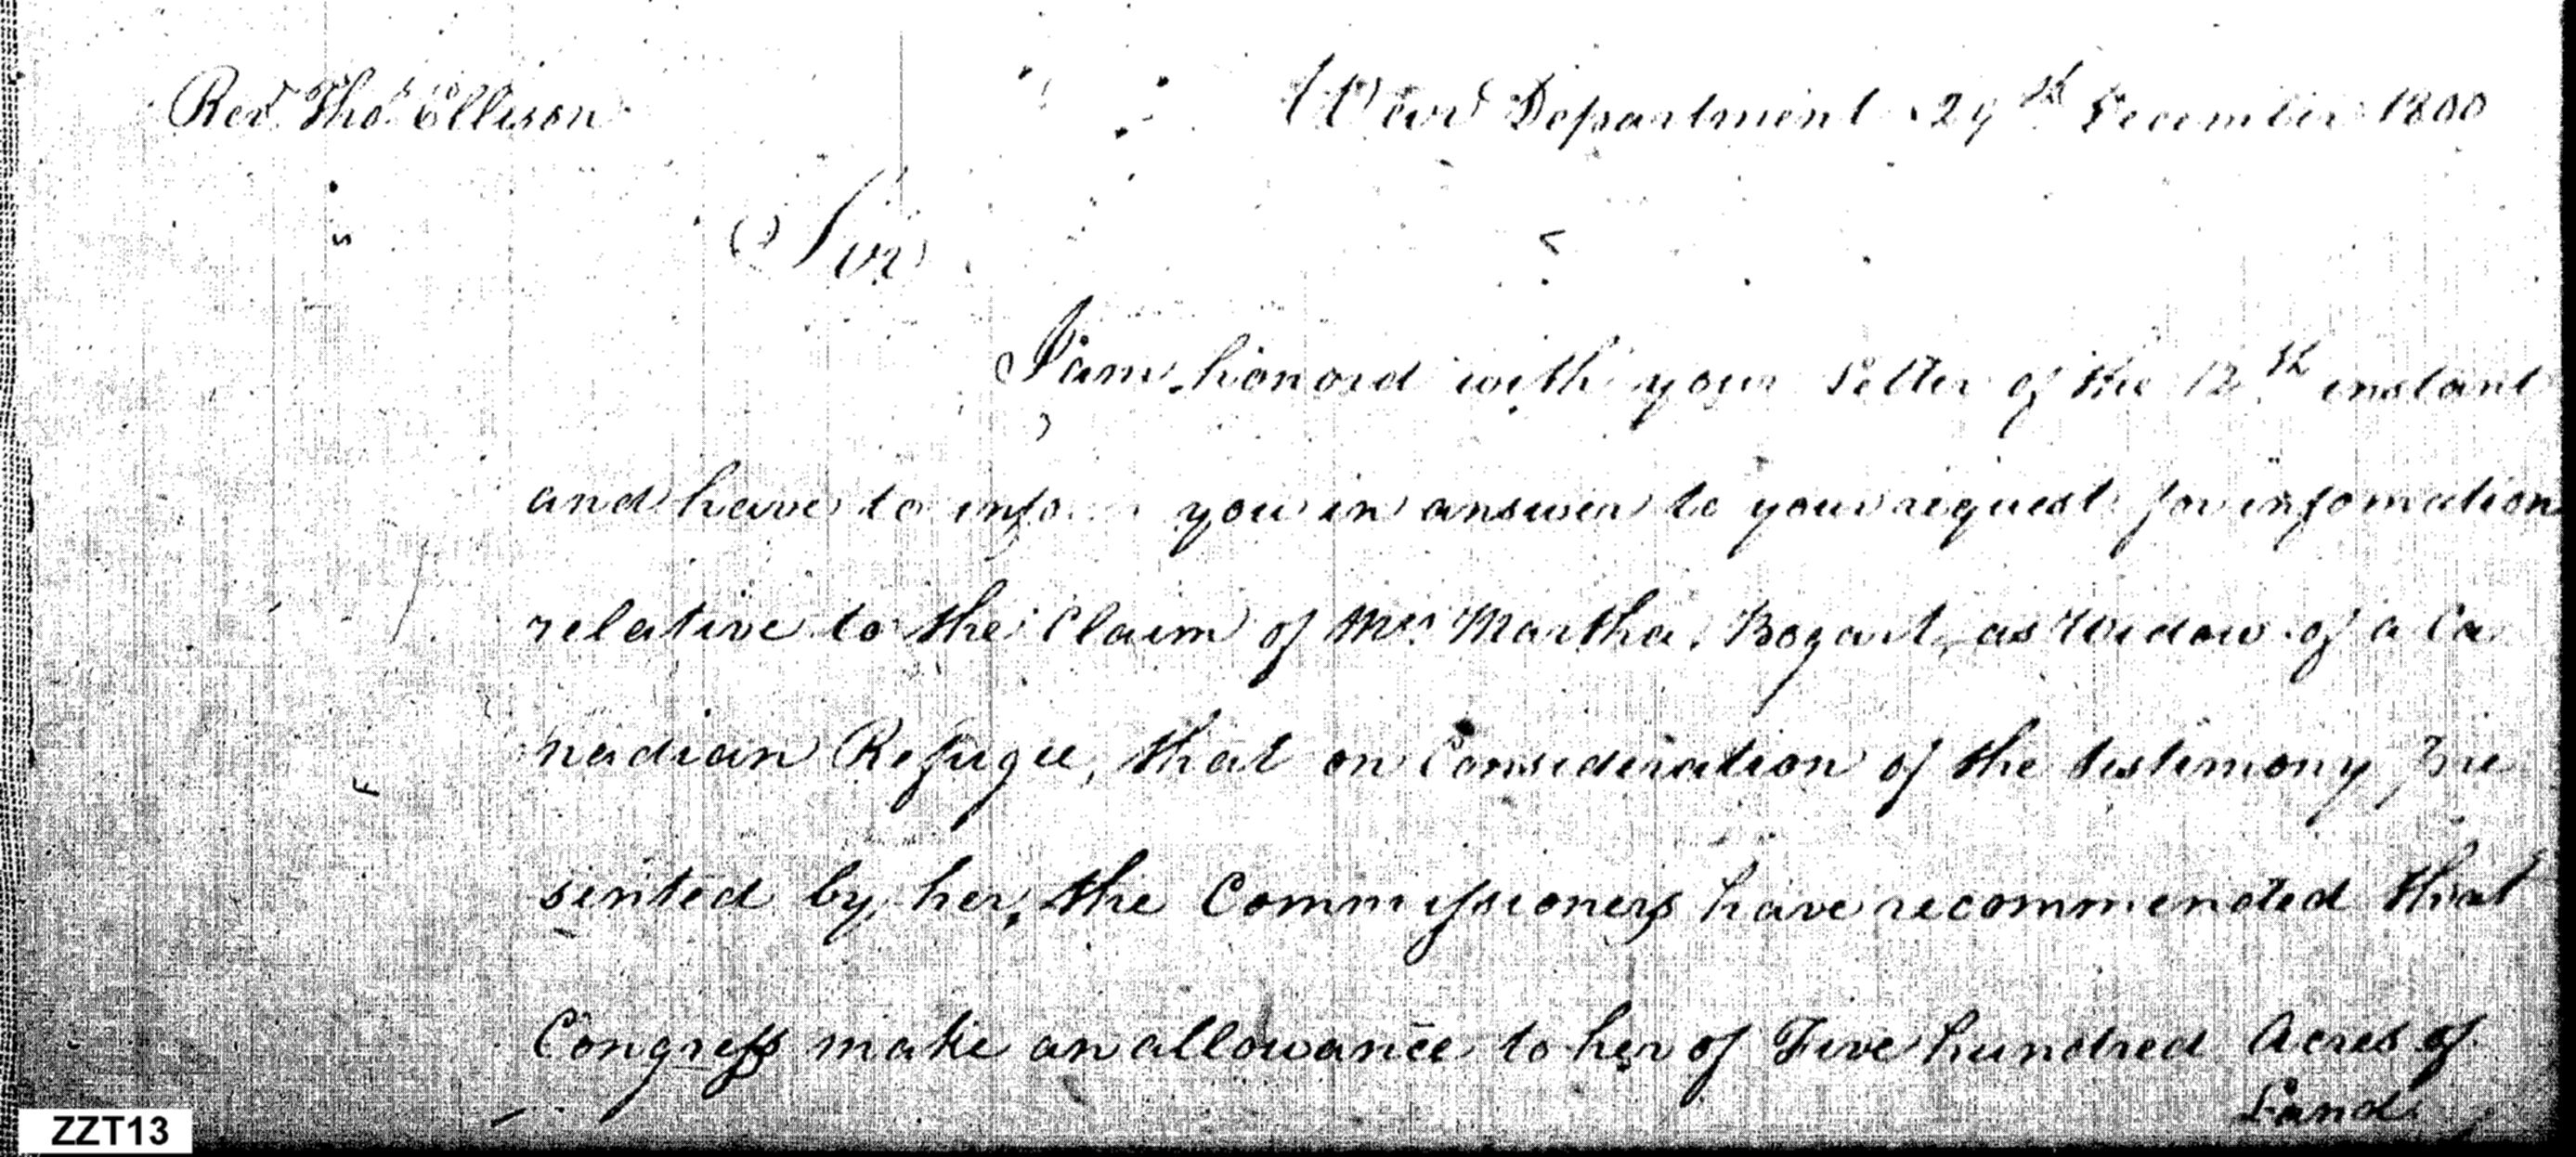 Revd. Thos. Ellison
War Department 29th December 1800
Sir
I am honord with your Letter of the 12th instant
and have to inform you in answer to your request for infomation
relative to the Claim of Mrs. Martha Bogart, as Widow of a Ca
nadian Refugee, that on Consideration of the testimony pre
sented by her, the Commissioners have recommended that
Congress make an allowance to her of Five hundred Acres of
Land
ZZT13